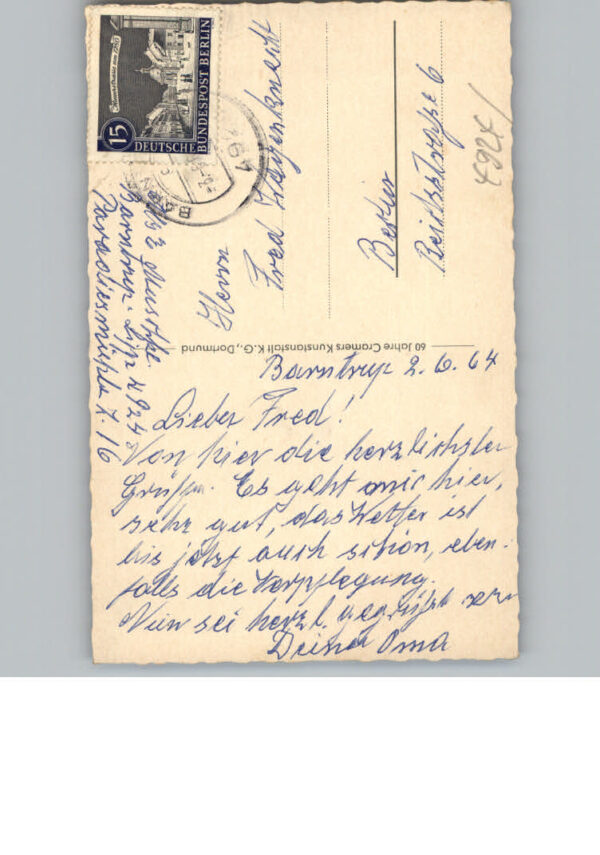 15
DEUTSCHE
BUNDESPOST BERLIN
4924
Herrn
Fred
Berlin
Reichsstraße 6
Barntrup - Lipp 4924
Paradiesmühle 7.16
60 Jahre Cramers Kunstanstalt K.G., Dortmund
Barntrup 2.6.64
Lieber Fred!
Von hier die herzlichsten
Grüße. Es geht mir hier,
sehr gut, das Wetter ist
bis jetzt auch schön, eben-
falls die Verpflegung.
Nun sei herzl. gegrüßt von
Deiner Oma